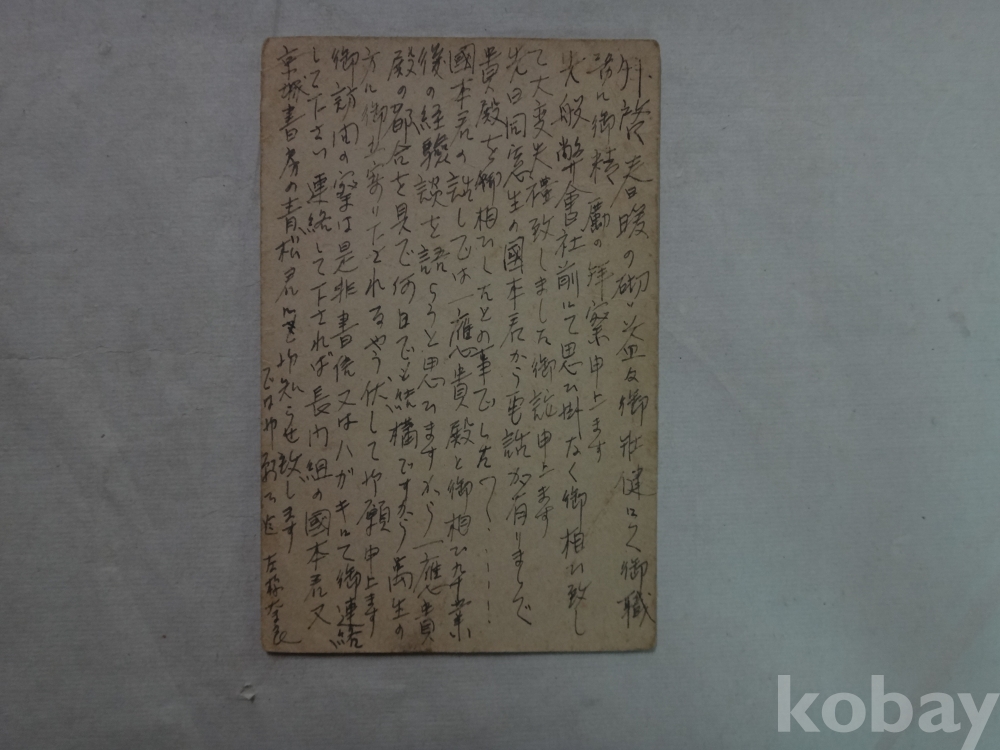 拝啓 春暖の砌 益々御壮健にて御職
務に御精励の 拝察申上ます
先般弊會社前にて思ひ掛なく御相ひ致し
て大変失禮致しました御詫申上ます
先日同窓生の國本君から電話が有りまして
貴殿を御相ひしたとの事でした
國本君の話しでは一應貴殿と御相ひ 卒業
後の経験談を語らうと思ひますから一應貴
殿の都合を見て何日でも結構ですから 生の
方に御立寄り下されるやう伏してお願申上ます
御訪問の際は是非書信又はハガキにて御連絡
して下さい連絡して下されば長門組の國本君又
京城書房の青松君に お知らせ致します
ではお